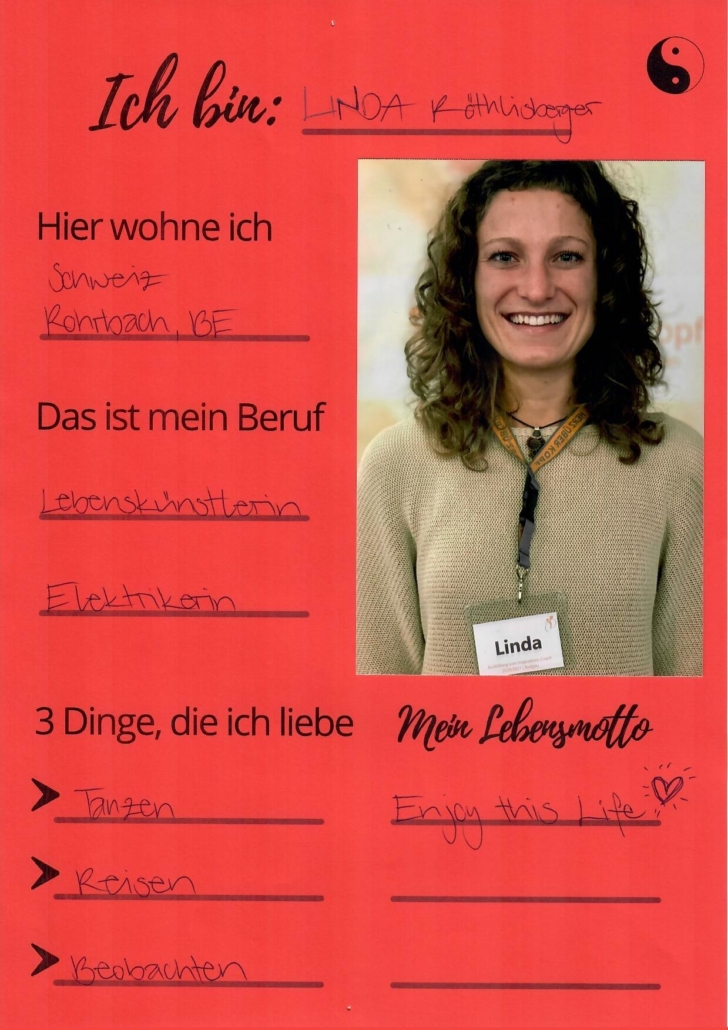 Ich bin: LINDA Röthlisberger
Hier wohne ich
Schweiz
Rohrbach, BE
Das ist mein Beruf
Lebenskünstlerin
Elektrikerin
Linda
3 Dinge, die ich liebe
Tanzen
Reisen
Beobachten
Mein Lebensmotto
Enjoy this Life